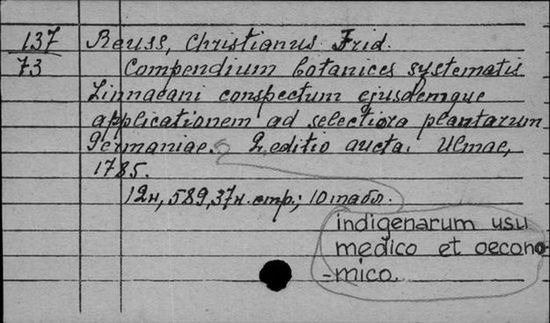 137 Reuss, Christianus Frid.
73 Compendium botanices systematis
Linnaeani conspectum ejusdemque
applicationem ad selectiora plantarum
Germaniae. 2 editio aucta. Ulmae,
1785.
12н, 589, 37н. стр.; 10 табл.
indigenarum usu
medico et oecono-
-mico.